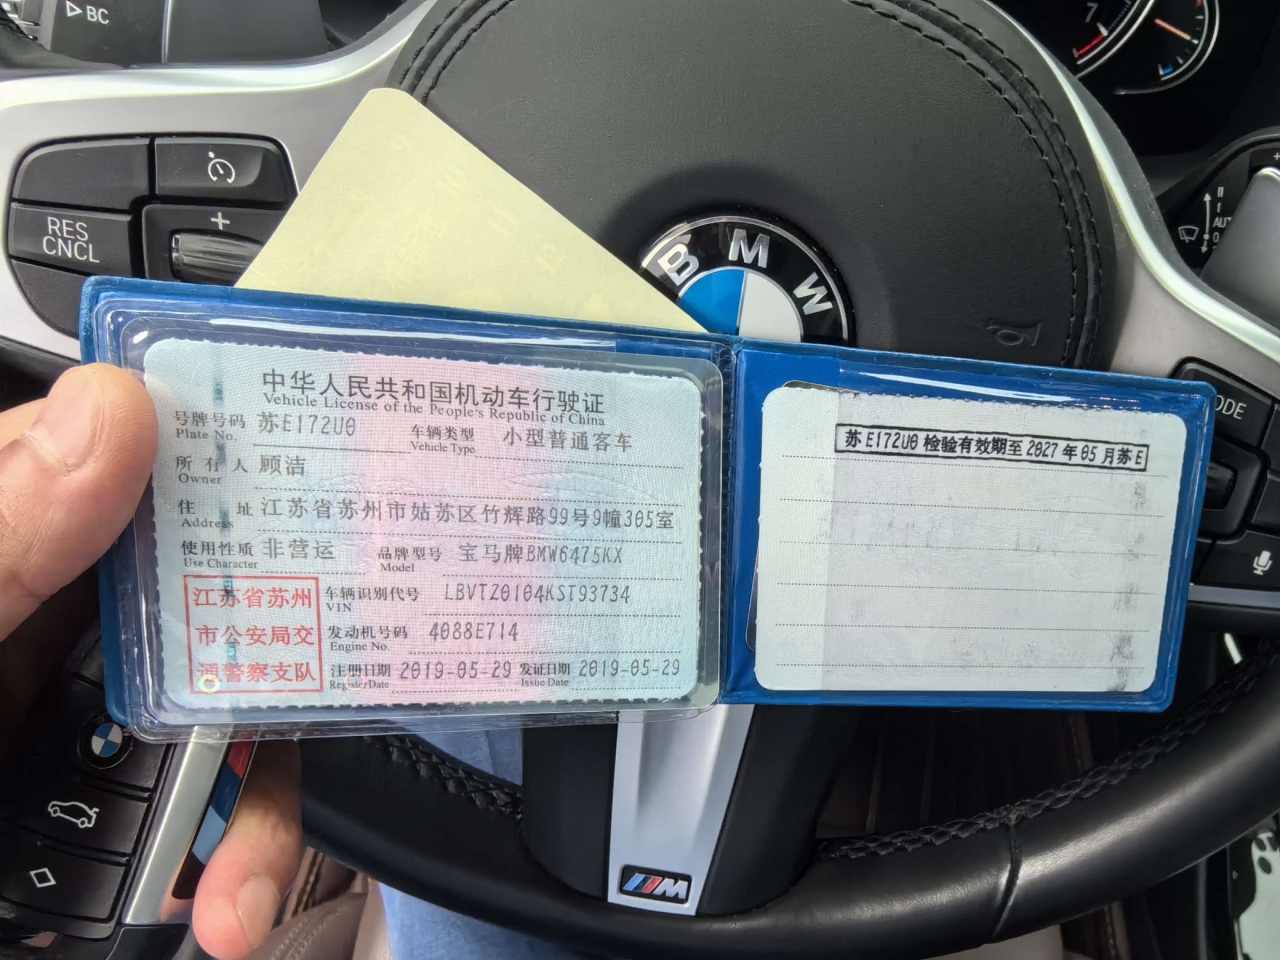 BC
7
RES
CNCL
+
BMW
II
I
AUT
0
ODE
中华人民共和国机动车行驶证
Vehicle License of the People's Republic of China
号牌号码 苏E172U0 车辆类型 小型普通客车
Plate No. Vehicle Type
所有人 顾洁
Owner
住址 江苏省苏州市姑苏区竹辉路99号9幢305室
Address
使用性质 非营运 品牌型号 宝马牌BMW6475KX
Use Character Model
江苏省苏州
市公安局交
通警察支队
车辆识别代号 LBVTZ0104KST93734
VIN
发动机号码 4088E714
Engine No.
注册日期 2019-05-29 发证日期 2019-05-29
Register Date Issue Date
苏E172U0 检验有效期至2027年05月苏E
M